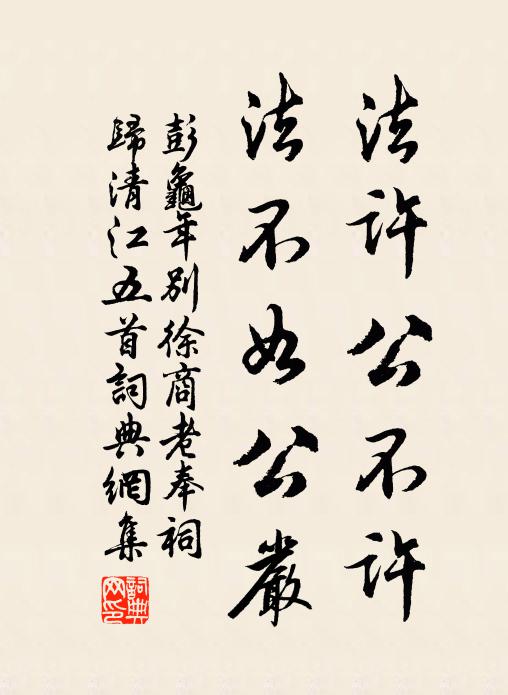 法許公不許
法不如公嚴
彭龜年別徐商老奉祠
歸清江五首詞典網集
詞典網印